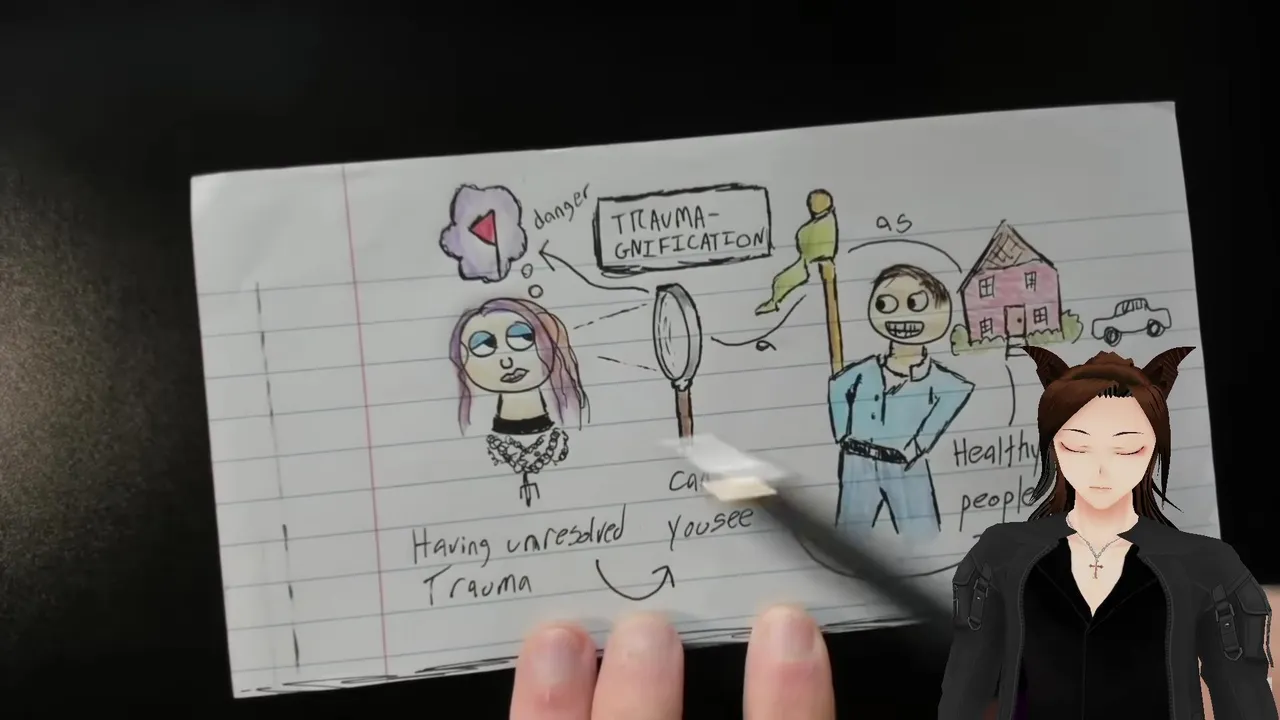 danger
TRAUMA-
GNIFICATION
as
a
Having unresolved
Trauma
you see
Healthy
people